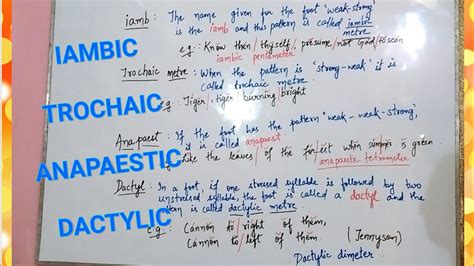 iamb : The name given for the foot 'weak-strong'
is the iamb and this pattern is called iambic
metre
e.g : Know then / thyself /, presume / not God / to scan
iambic pentameter
IAMBIC
Trochaic metre : When the pattern is 'strong-weak' it is
called trochaic metre.
e.g : Tiger / , tiger / burning / bright
TROCHAIC
Anapaest : If the foot has the pattern 'weak-weak-strong',
it is called anapaest
Like the leaves / of the forest when summer is green
anapaestic tetrameter
ANAPAESTIC
Dactyl : In a foot, if one stressed syllable is followed by two
unstressed syllable, the foot is called a dactyl and the
pattern is called dactylic metre.
DACTYLIC
e.g : Cannon to / right of them,
Cannon to / left of them (Tennyson)
Dactylic dimeter.